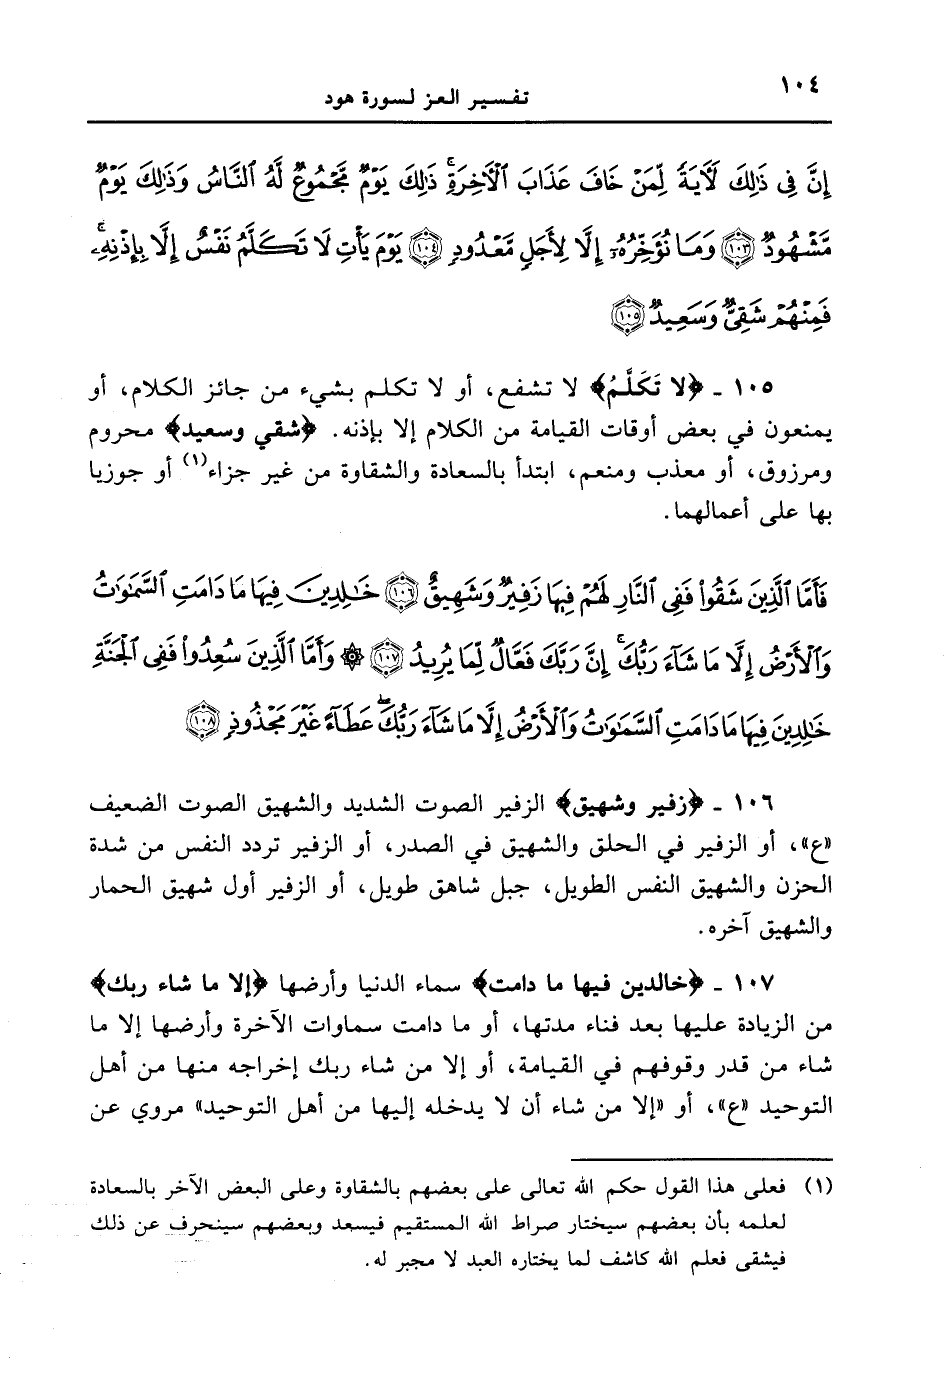 ١٠٤
تفسير العز لسورة هود
إِنَّ فِى ذَٰلِكَ لَآيَةً لِّمَنْ خَافَ عَذَابَ ٱلْآخِرَةِ ۚ ذَٰلِكَ يَوْمٌ مَّجْمُوعٌ لَّهُ ٱلنَّاسُ وَذَٰلِكَ يَوْمٌ
مَّشْهُودٌ ۝١٠٣ وَمَا نُؤَخِّرُهُۥٓ إِلَّا لِأَجَلٍ مَّعْدُودٍ ۝١٠٤ يَوْمَ يَأْتِ لَا تَكَلَّمُ نَفْسٌ إِلَّا بِإِذْنِهِۦ ۚ
فَمِنْهُمْ شَقِىٌّ وَسَعِيدٌ ۝١٠٥
١٠٥ - ﴿لا تَكَلَّمُ﴾ لا تشفع، أو لا تكلم بشيء من جائز الكلام، أو
يمنعون في بعض أوقات القيامة من الكلام إلا بإذنه. ﴿شقي وسعيد﴾ محروم
ومرزوق، أو معذب ومنعم، ابتدأ بالسعادة والشقاوة من غير جزاء(١) أو جوزيا
بها على أعمالهما.
فَأَمَّا ٱلَّذِينَ شَقُوا۟ فَفِى ٱلنَّارِ لَهُمْ فِيهَا زَفِيرٌ وَشَهِيقٌ ۝١٠٦ خَٰلِدِينَ فِيهَا مَا دَامَتِ ٱلسَّمَٰوَٰتُ
وَٱلْأَرْضُ إِلَّا مَا شَآءَ رَبُّكَ ۚ إِنَّ رَبَّكَ فَعَّالٌ لِّمَا يُرِيدُ ۝١٠٧ ۞ وَأَمَّا ٱلَّذِينَ سُعِدُوا۟ فَفِى ٱلْجَنَّةِ
خَٰلِدِينَ فِيهَا مَا دَامَتِ ٱلسَّمَٰوَٰتُ وَٱلْأَرْضُ إِلَّا مَا شَآءَ رَبُّكَ ۖ عَطَآءً غَيْرَ مَجْذُوذٍ ۝١٠٨
١٠٦ - ﴿زفير وشهيق﴾ الزفير الصوت الشديد والشهيق الصوت الضعيف
«ع»، أو الزفير في الحلق والشهيق في الصدر، أو الزفير تردد النفس من شدة
الحزن والشهيق النفس الطويل، جبل شاهق طويل، أو الزفير أول شهيق الحمار
والشهيق آخره.
١٠٧ - ﴿خالدين فيها ما دامت﴾ سماء الدنيا وأرضها ﴿إلا ما شاء ربك﴾
من الزيادة عليها بعد فناء مدتها، أو ما دامت سماوات الآخرة وأرضها إلا ما
شاء من قدر وقوفهم في القيامة، أو إلا من شاء ربك إخراجه منها من أهل
التوحيد «ع»، أو «إلا من شاء أن لا يدخله إليها من أهل التوحيد» مروي عن
(١) فعلى هذا القول حكم الله تعالى على بعضهم بالشقاوة وعلى البعض الآخر بالسعادة
لعلمه بأن بعضهم سيختار صراط الله المستقيم فيسعد وبعضهم سينحرف عن ذلك
فيشقى فعلم الله كاشف لما يختاره العبد لا مجبر له.